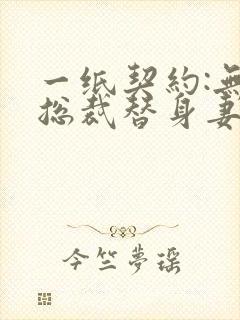 一纸契約:無
总裁替身妻
今竺夢瑶